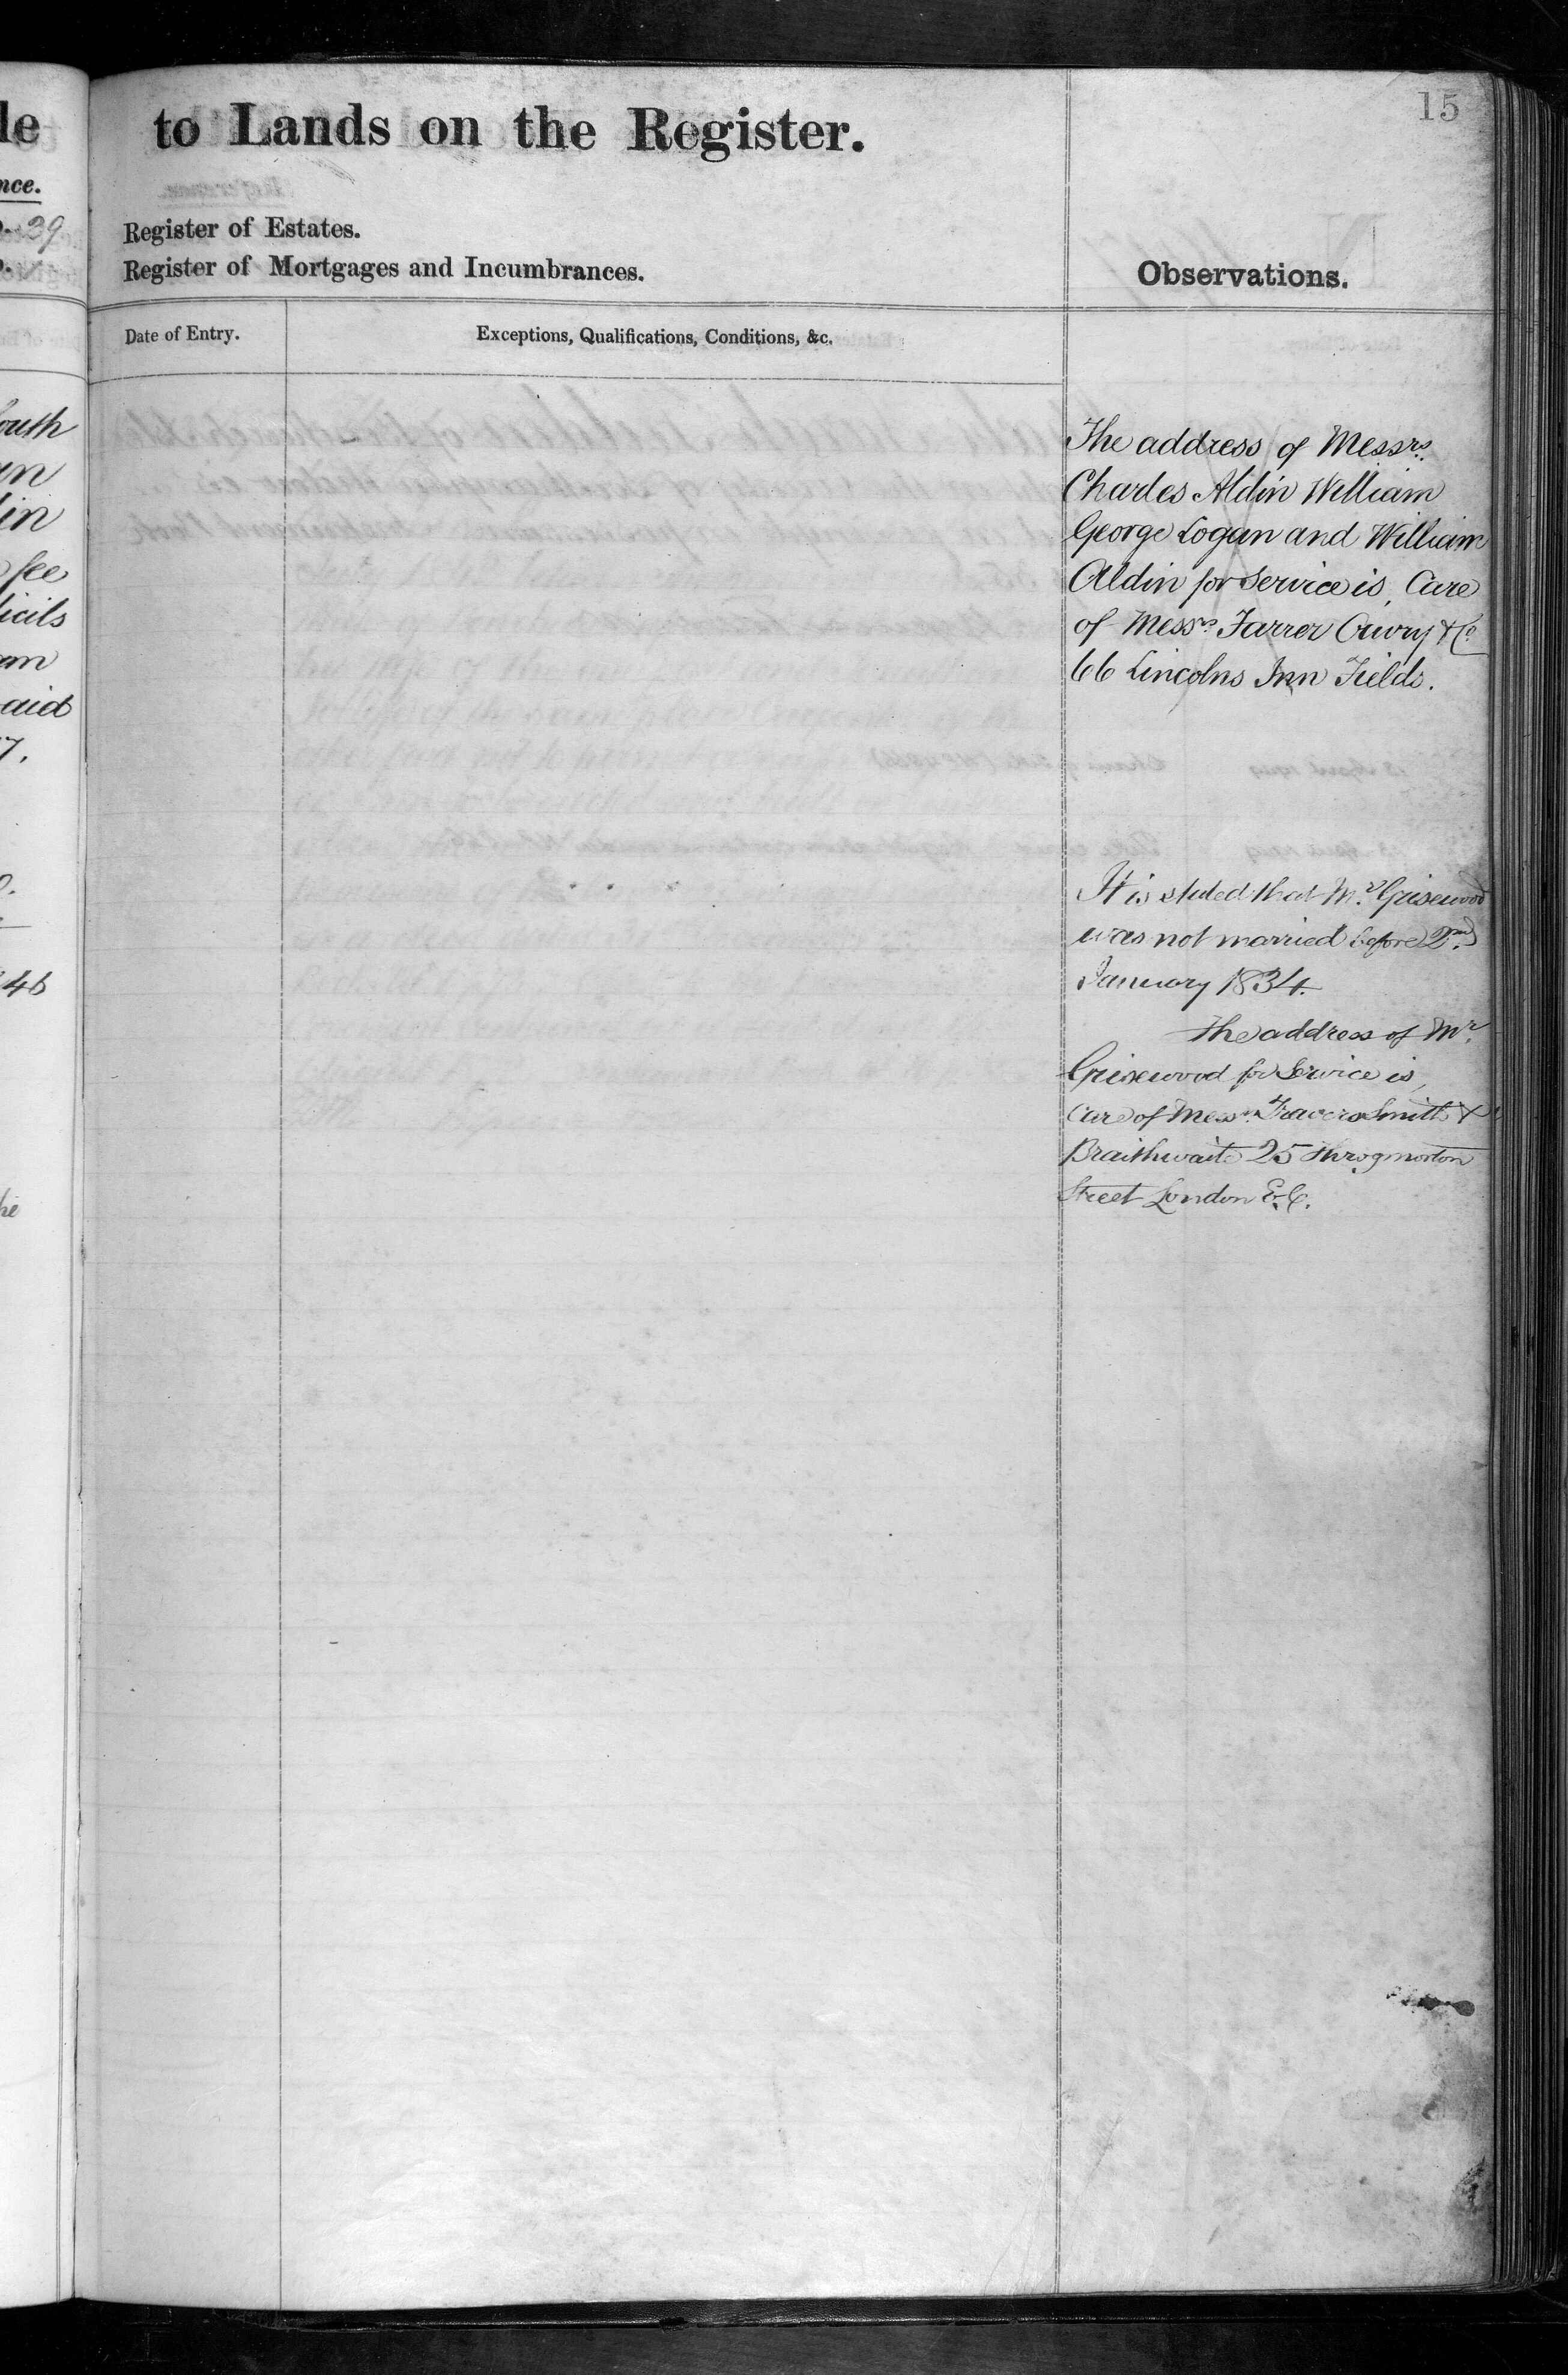 15
to Lands on the Register.
Register of Estates.
Register of Mortgages and Incumbrances.
Observations.
Date of Entry.
Exceptions, Qualifications, Conditions, &c.
The address of Messrs.
Charles Aldin William
George Logan and William
Aldin for Service is, Care
of Messrs. Farrer Ouvry & Co
66 Lincolns Inn Fields.
It is stated that Mr. Grisewood
was not married before 2nd
January 1834.
The address of Mr.
Grisewood for Service is,
Care of Messrs. Travers Smith &
Braithwaite 25 Throgmorton
Street London E.C.
le
nce.
39
outh
an
in
fee
icils
am
aid
7.
46
he